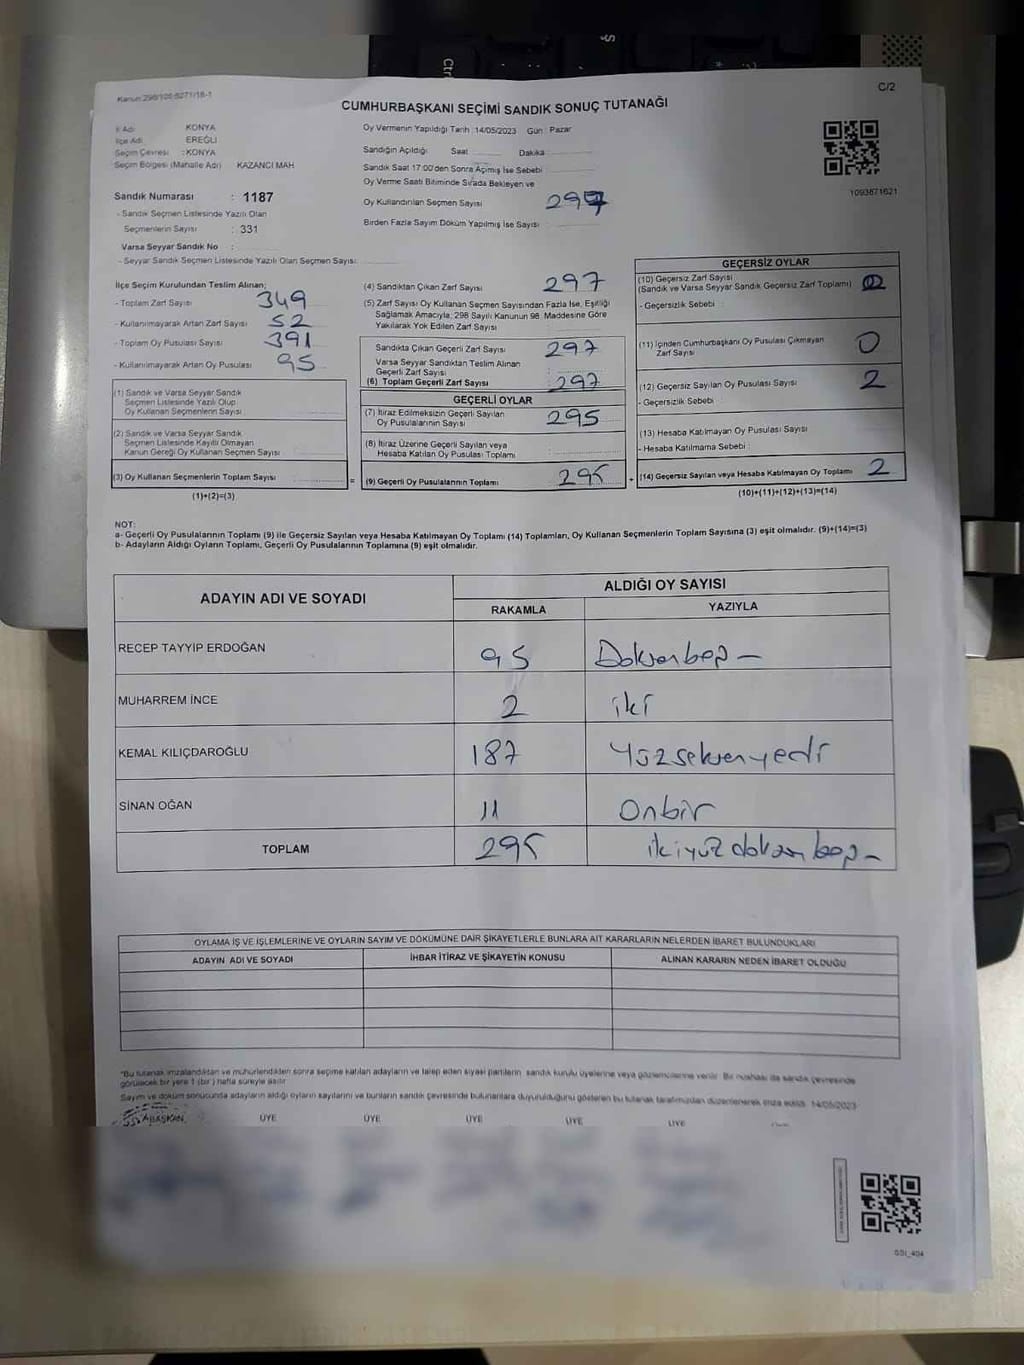 Ctrl
Ş
Kanun:298/106-6271/18-1
C/2
CUMHURBAŞKANI SEÇİMİ SANDIK SONUÇ TUTANAĞI
İl Adı KONYA
İlçe Adı EREĞLİ
Seçim Çevresi : KONYA
Seçim Bölgesi (Mahalle Adı) KAZANCI MAH
Sandık Numarası : 1187
- Sandık Seçmen Listesinde Yazılı Olan
Seçmenlerin Sayısı : 331
Varsa Seyyar Sandık No :
- Seyyar Sandık Seçmen Listesinde Yazılı Olan Seçmen Sayısı:
Oy Vermenin Yapıldığı Tarih : 14/05/2023 Gün : Pazar
Sandığın Açıldığı Saat Dakika
Sandık Saat 17:00'den Sonra Açılmış İse Sebebi :
Oy Verme Saati Bitiminde Sırada Bekleyen ve
Oy Kullandırılan Seçmen Sayısı 297
Birden Fazla Sayım Döküm Yapılmış İse Sayısı :
1093871621
İlçe Seçim Kurulundan Teslim Alınan;
- Toplam Zarf Sayısı 349
- Kullanılmayarak Artan Zarf Sayısı 52
- Toplam Oy Pusulası Sayısı 391
- Kullanılmayarak Artan Oy Pusulası 95
(1) Sandık ve Varsa Seyyar Sandık
Seçmen Listesinde Yazılı Olup
Oy Kullanan Seçmenlerin Sayısı
(2) Sandık ve Varsa Seyyar Sandık
Seçmen Listesinde Kayıtlı Olmayan
Kanun Gereği Oy Kullanan Seçmen Sayısı
(3) Oy Kullanan Seçmenlerin Toplam Sayısı =
(1)+(2)=(3)
(4) Sandıktan Çıkan Zarf Sayısı 297
(5) Zarf Sayısı Oy Kullanan Seçmen Sayısından Fazla İse, Eşitliği
Sağlamak Amacıyla, 298 Sayılı Kanunun 98. Maddesine Göre
Yakılarak Yok Edilen Zarf Sayısı
Sandıkta Çıkan Geçerli Zarf Sayısı 297
Varsa Seyyar Sandıktan Teslim Alınan
Geçerli Zarf Sayısı
(6) Toplam Geçerli Zarf Sayısı 297
GEÇERLİ OYLAR
(7) İtiraz Edilmeksizin Geçerli Sayılan
Oy Pusulalarının Sayısı 295
(8) İtiraz Üzerine Geçerli Sayılan veya
Hesaba Katılan Oy Pusulası Toplamı
(9) Geçerli Oy Pusulalarının Toplamı 295 +
GEÇERSİZ OYLAR
(10) Geçersiz Zarf Sayısı
(Sandık ve Varsa Seyyar Sandık Geçersiz Zarf Toplamı)
- Geçersizlik Sebebi :
(11) İçinden Cumhurbaşkanı Oy Pusulası Çıkmayan
Zarf Sayısı 0
(12) Geçersiz Sayılan Oy Pusulası Sayısı 2
- Geçersizlik Sebebi :
(13) Hesaba Katılmayan Oy Pusulası Sayısı
- Hesaba Katılmama Sebebi :
(14) Geçersiz Sayılan veya Hesaba Katılmayan Oy Toplamı 2
(10)+(11)+(12)+(13)=(14)
NOT:
a- Geçerli Oy Pusulalarının Toplamı (9) ile Geçersiz Sayılan veya Hesaba Katılmayan Oy Toplamı (14) Toplamları, Oy Kullanan Seçmenlerin Toplam Sayısına (3) eşit olmalıdır. (9)+(14)=(3)
b- Adayların Aldığı Oyların Toplamı, Geçerli Oy Pusulalarının Toplamına (9) eşit olmalıdır.
ADAYIN ADI VE SOYADI ALDIĞI OY SAYISI
RAKAMLA YAZIYLA
RECEP TAYYİP ERDOĞAN 95 Doksanbeş
MUHARREM İNCE 2 iki
KEMAL KILIÇDAROĞLU 187 Yüzseksenyedi
SİNAN OĞAN 11 Onbir
TOPLAM 295 ikiyüzdoksanbeş
OYLAMA İŞ VE İŞLEMLERİNE VE OYLARIN SAYIM VE DÖKÜMÜNE DAİR ŞİKAYETLERLE BUNLARA AİT KARARLARIN NELERDEN İBARET BULUNDUKLARI
ADAYIN ADI VE SOYADI İHBAR İTİRAZ VE ŞİKAYETİN KONUSU ALINAN KARARIN NEDEN İBARET OLDUĞU
*Bu tutanak imzalandıktan ve mühürlendikten sonra seçime katılan adayların ve talep eden siyasi partilerin sandık kurulu üyelerine veya gözlemcilerine verilir. Bir nüshası da sandık çevresinde
görülecek bir yere 1 (bir) hafta süreyle asılır.
Sayım ve döküm sonucunda adayların aldığı oyların sayılarını ve bunların sandık çevresinde bulunanlara duyurulduğunu gösteren bu tutanak tarafımızdan düzenlenerek imza edildi. 14/05/2023
BAŞKAN ÜYE ÜYE ÜYE ÜYE ÜYE
SSI_404